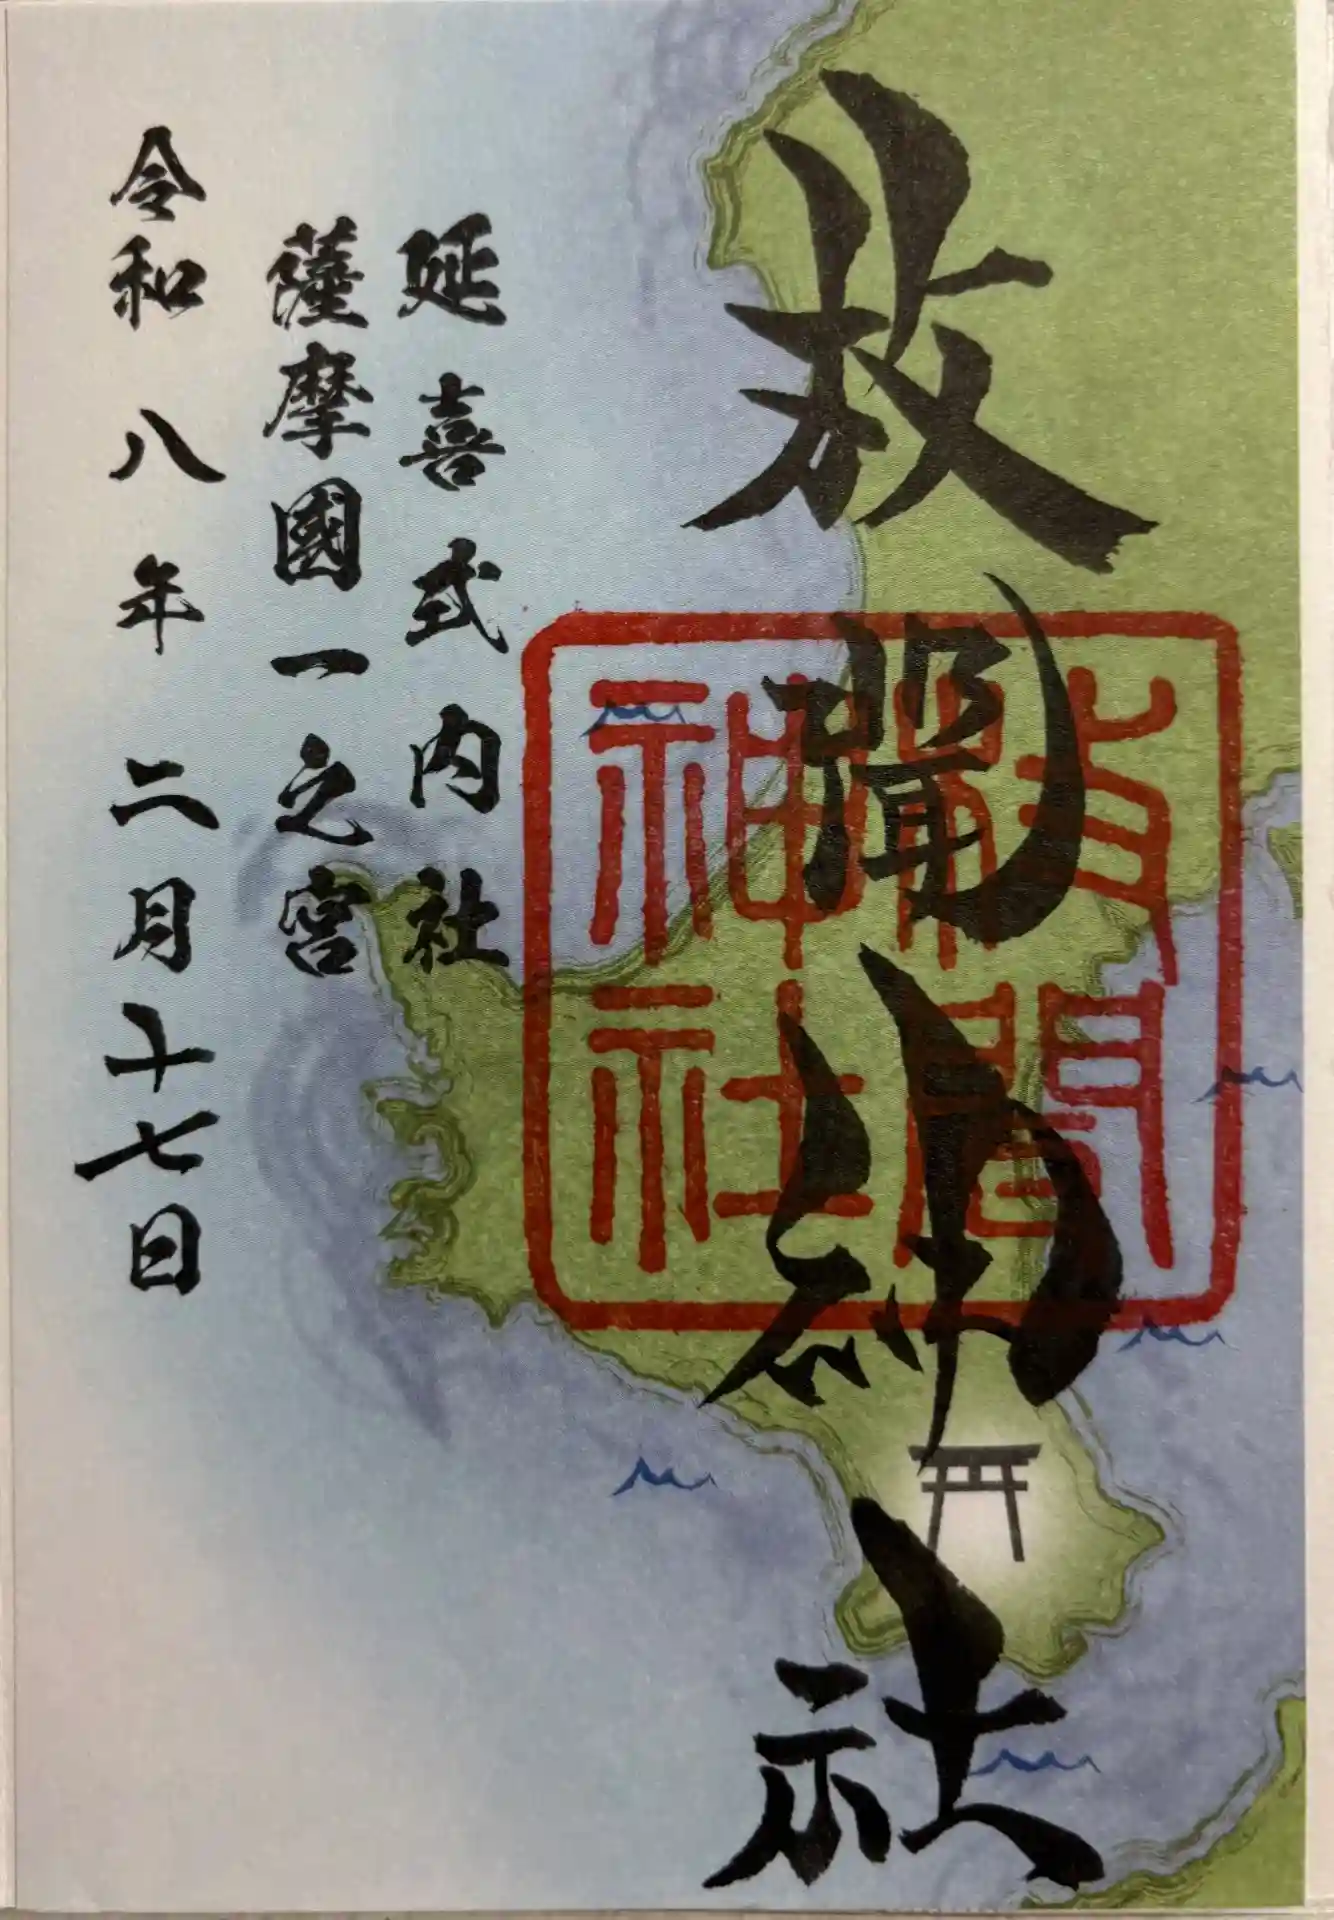 枚聞神社
延喜式内社
薩摩國一之宮
令和八年二月十七日
枚聞
神社